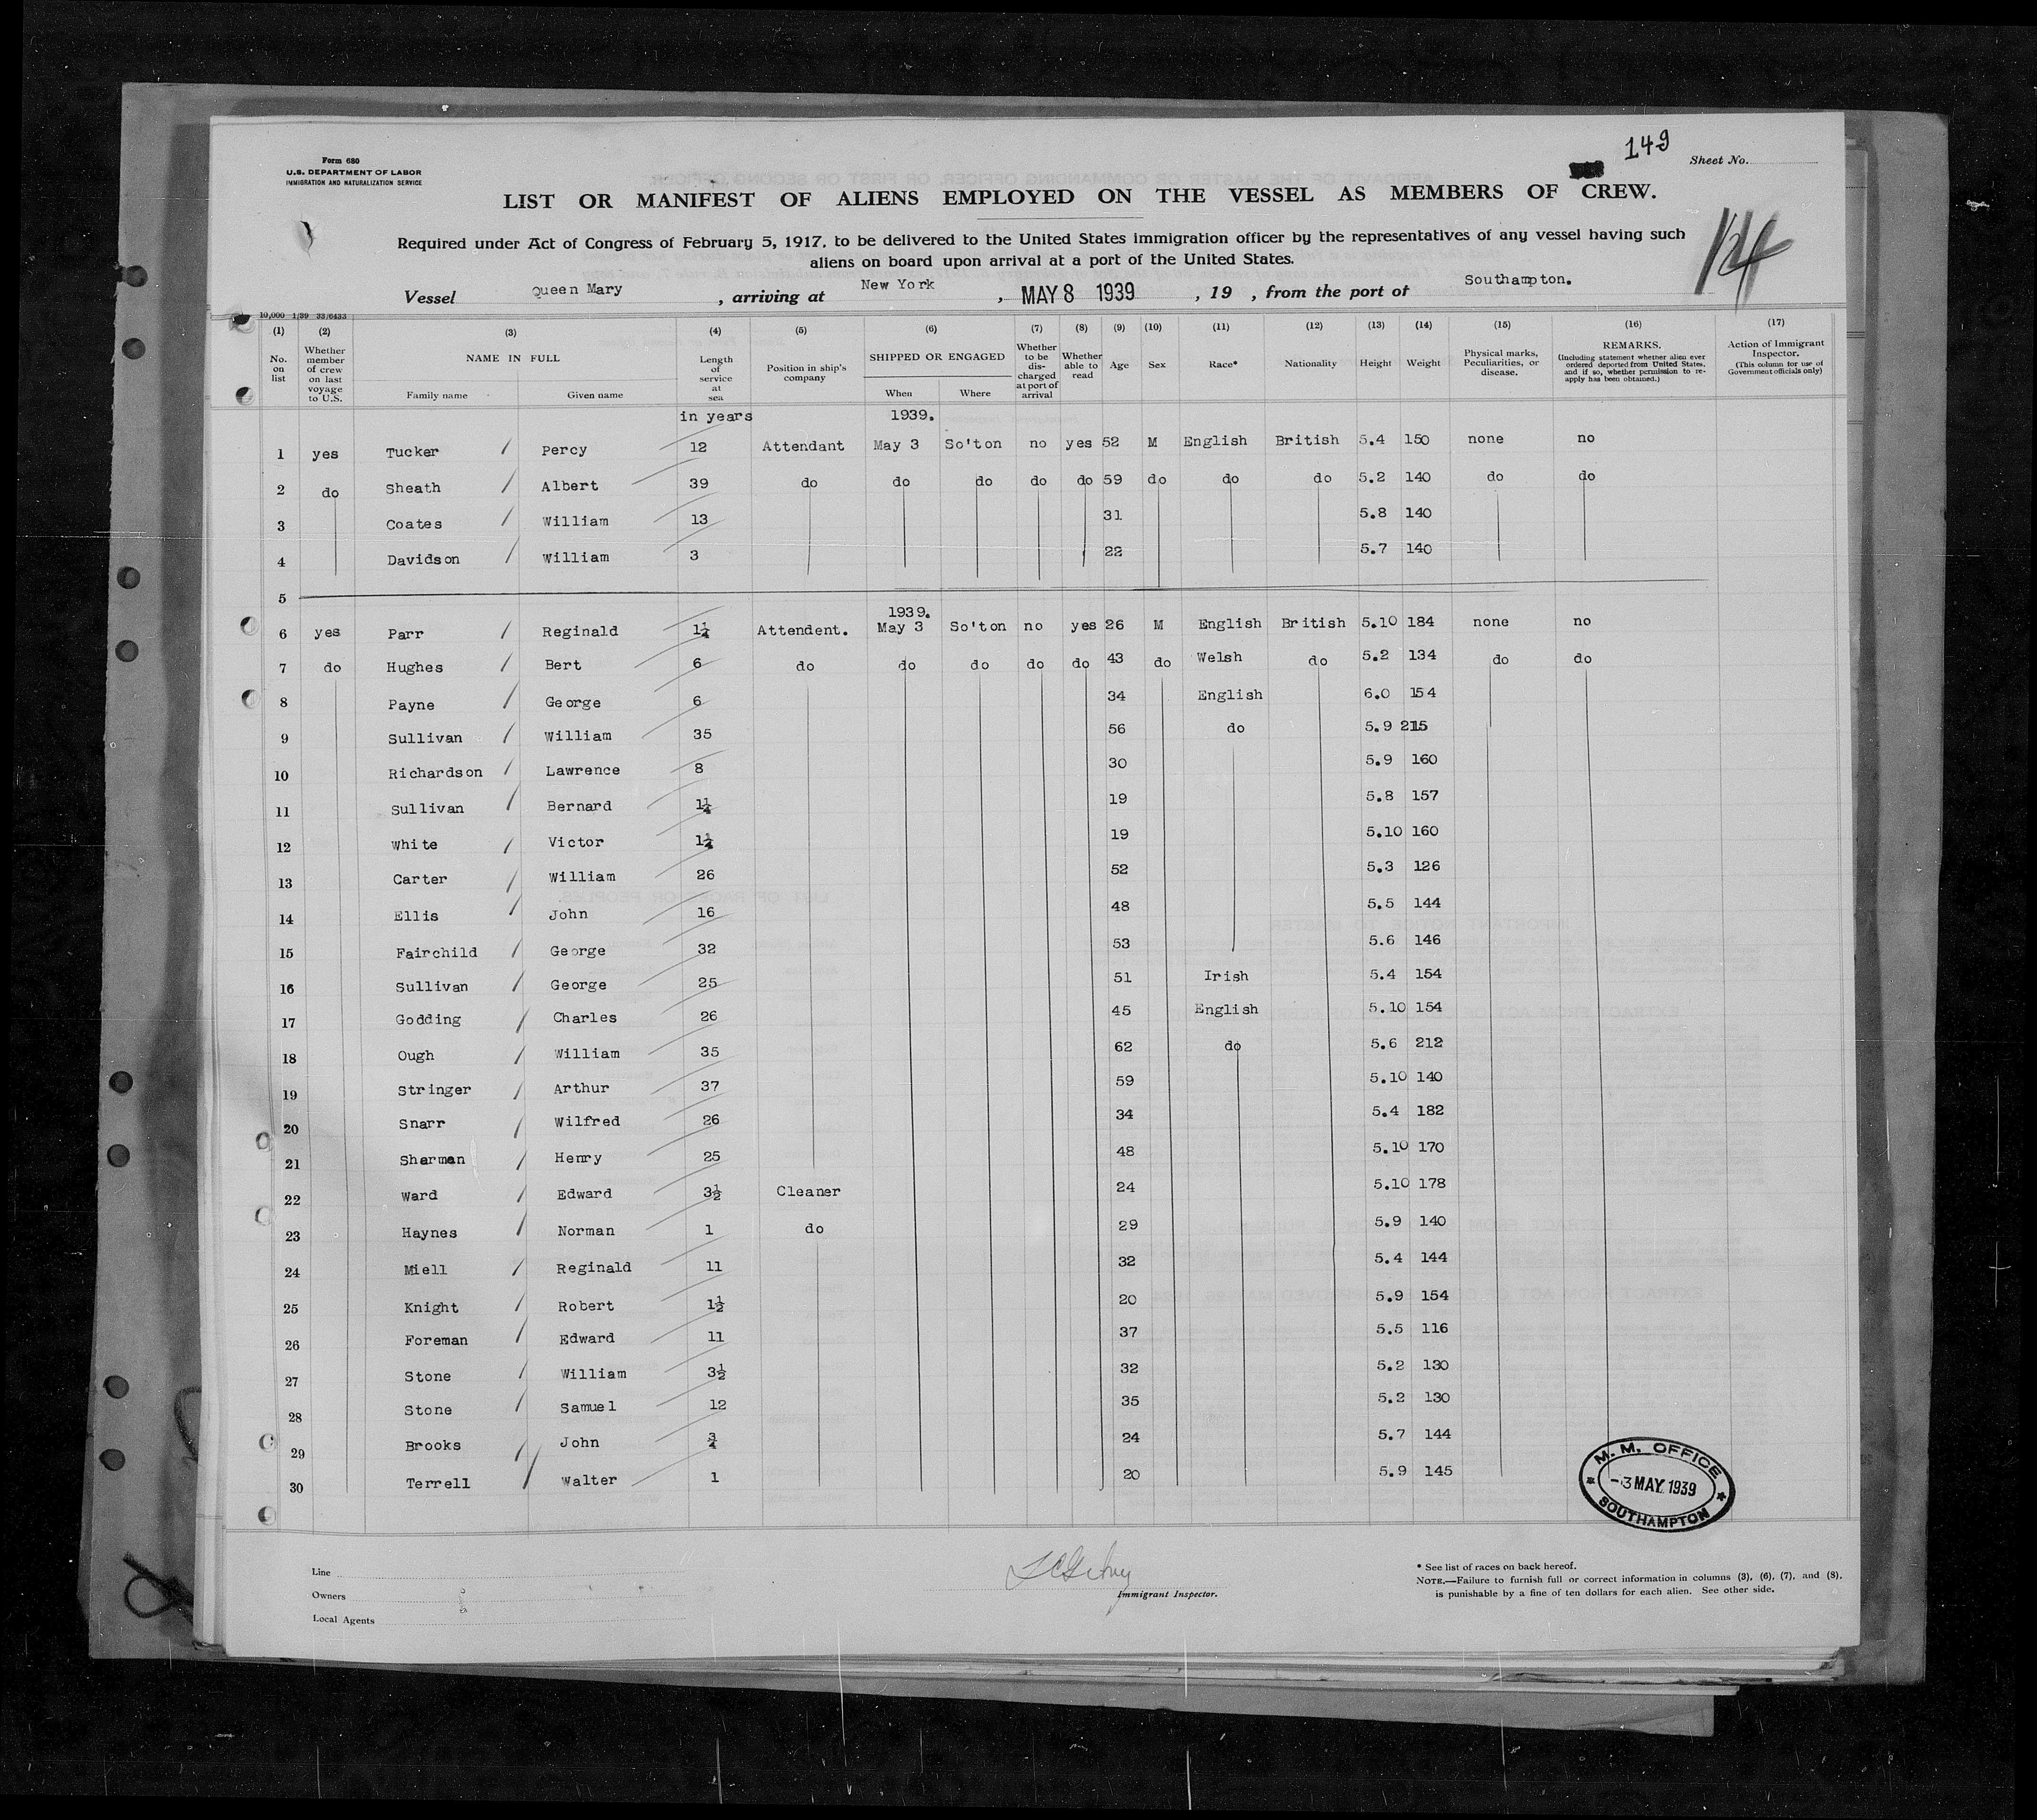 149
Sheet No.
Form 680
U.S. DEPARTMENT OF LABOR
IMMIGRATION AND NATURALIZATION SERVICE
LIST OR MANIFEST OF ALIENS EMPLOYED ON THE VESSEL AS MEMBERS OF CREW.
Required under Act of Congress of February 5, 1917, to be delivered to the United States immigration officer by the representatives of any vessel having such
aliens on board upon arrival at a port of the United States.
Vessel Queen Mary , arriving at New York , MAY 8 1939 , 19 , from the port of Southampton.
10,000 1/39 33/6433
(1) (2) (3) (4) (5) (6) (7) (8) (9) (10) (11) (12) (13) (14) (15) (16) (17)
No. on list
Whether member of crew on last voyage to U.S.
NAME IN FULL
Family name Given name
Length of service at sea
Position in ship's company
SHIPPED OR ENGAGED
When Where
Whether to be discharged at port of arrival
Whether able to read
Age
Sex
Race*
Nationality
Height
Weight
Physical marks, Peculiarities, or disease.
REMARKS.
(Including statement whether alien ever ordered deported from United States, and if so, whether permission to re-apply has been obtained.)
Action of Immigrant Inspector.
(This column for use of Government officials only)
in years 1939.
1 yes Tucker Percy 12 Attendant May 3 So'ton no yes 52 M English British 5.4 150 none no
2 do Sheath Albert 39 do do do do do 59 do do do 5.2 140 do do
3 Coates William 13 31 5.8 140
4 Davidson William 3 22 5.7 140
5
1939.
6 yes Parr Reginald 1¼ Attendent. May 3 So'ton no yes 26 M English British 5.10 184 none no
7 do Hughes Bert 6 do do do do do 43 do Welsh do 5.2 134 do do
8 Payne George 6 34 English 6.0 154
9 Sullivan William 35 56 do 5.9 215
10 Richardson Lawrence 8 30 5.9 160
11 Sullivan Bernard 1¼ 19 5.8 157
12 White Victor 1¼ 19 5.10 160
13 Carter William 26 52 5.3 126
14 Ellis John 16 48 5.5 144
15 Fairchild George 32 53 5.6 146
16 Sullivan George 25 51 Irish 5.4 154
17 Godding Charles 26 45 English 5.10 154
18 Ough William 35 62 do 5.6 212
19 Stringer Arthur 37 59 5.10 140
20 Snarr Wilfred 26 34 5.4 182
21 Sharman Henry 25 48 5.10 170
22 Ward Edward 3½ Cleaner 24 5.10 178
23 Haynes Norman 1 do 29 5.9 140
24 Miell Reginald 11 32 5.4 144
25 Knight Robert 1½ 20 5.9 154
26 Foreman Edward 11 37 5.5 116
27 Stone William 3½ 32 5.2 130
28 Stone Samuel 12 35 5.2 130
29 Brooks John ¾ 24 5.7 144
30 Terrell Walter 1 20 5.9 145
M. M. OFFICE
-3 MAY 1939
SOUTHAMPTON
Line
Owners
Local Agents
Immigrant Inspector.
* See list of races on back hereof.
NOTE.—Failure to furnish full or correct information in columns (3), (6), (7), and (8),
is punishable by a fine of ten dollars for each alien. See other side.